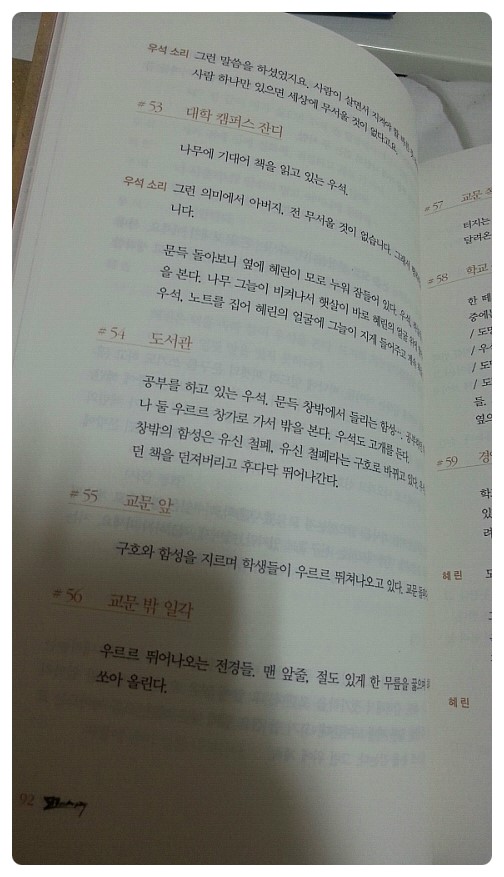 우석 소리 그런 말씀을 하셨었지요. 사람이 살면서 지켜야 할
사람 하나만 있으면 세상에 무서울 것이 없다고요.
#53 대학 캠퍼스 잔디
나무에 기대어 책을 읽고 있는 우석.
우석 소리 그런 의미에서 아버지, 전 무서울 것이 없습니다. 그래서
니다.
문득 돌아보니 옆에 혜린이 모로 누워 잠들어 있다. 우석,
을 본다. 나무 그늘이 비켜나서 햇살이 바로 혜린의 얼굴
우석, 노트를 집어 혜린의 얼굴에 그늘이 지게 들어주고
#54 도서관
공부를 하고 있는 우석. 문득 창밖에서 들리는 함성….
나 둘 우르르 창가로 가서 밖을 본다. 우석도 고개를 든다.
창밖의 함성은 유신 철폐, 유신 철폐라는 구호로 바뀌고 있다.
던 책을 던져버리고 후다닥 뛰어나간다.
#55 교문 앞
구호와 함성을 지르며 학생들이 우르르 뛰쳐나오고 있다. 교문
#56 교문 밖 일각
우르르 뛰어나오는 전경들. 맨 앞줄, 절도 있게 한 무릎을 꿇으며
쏘아 올린다.
92
#57 교문
터지는
달려온
#58 학교
한 떼
중에는
/ 도망
/ 우
/ 도망
/ 도
들.
옆으
#59
학
있
려
혜린 도
혜린